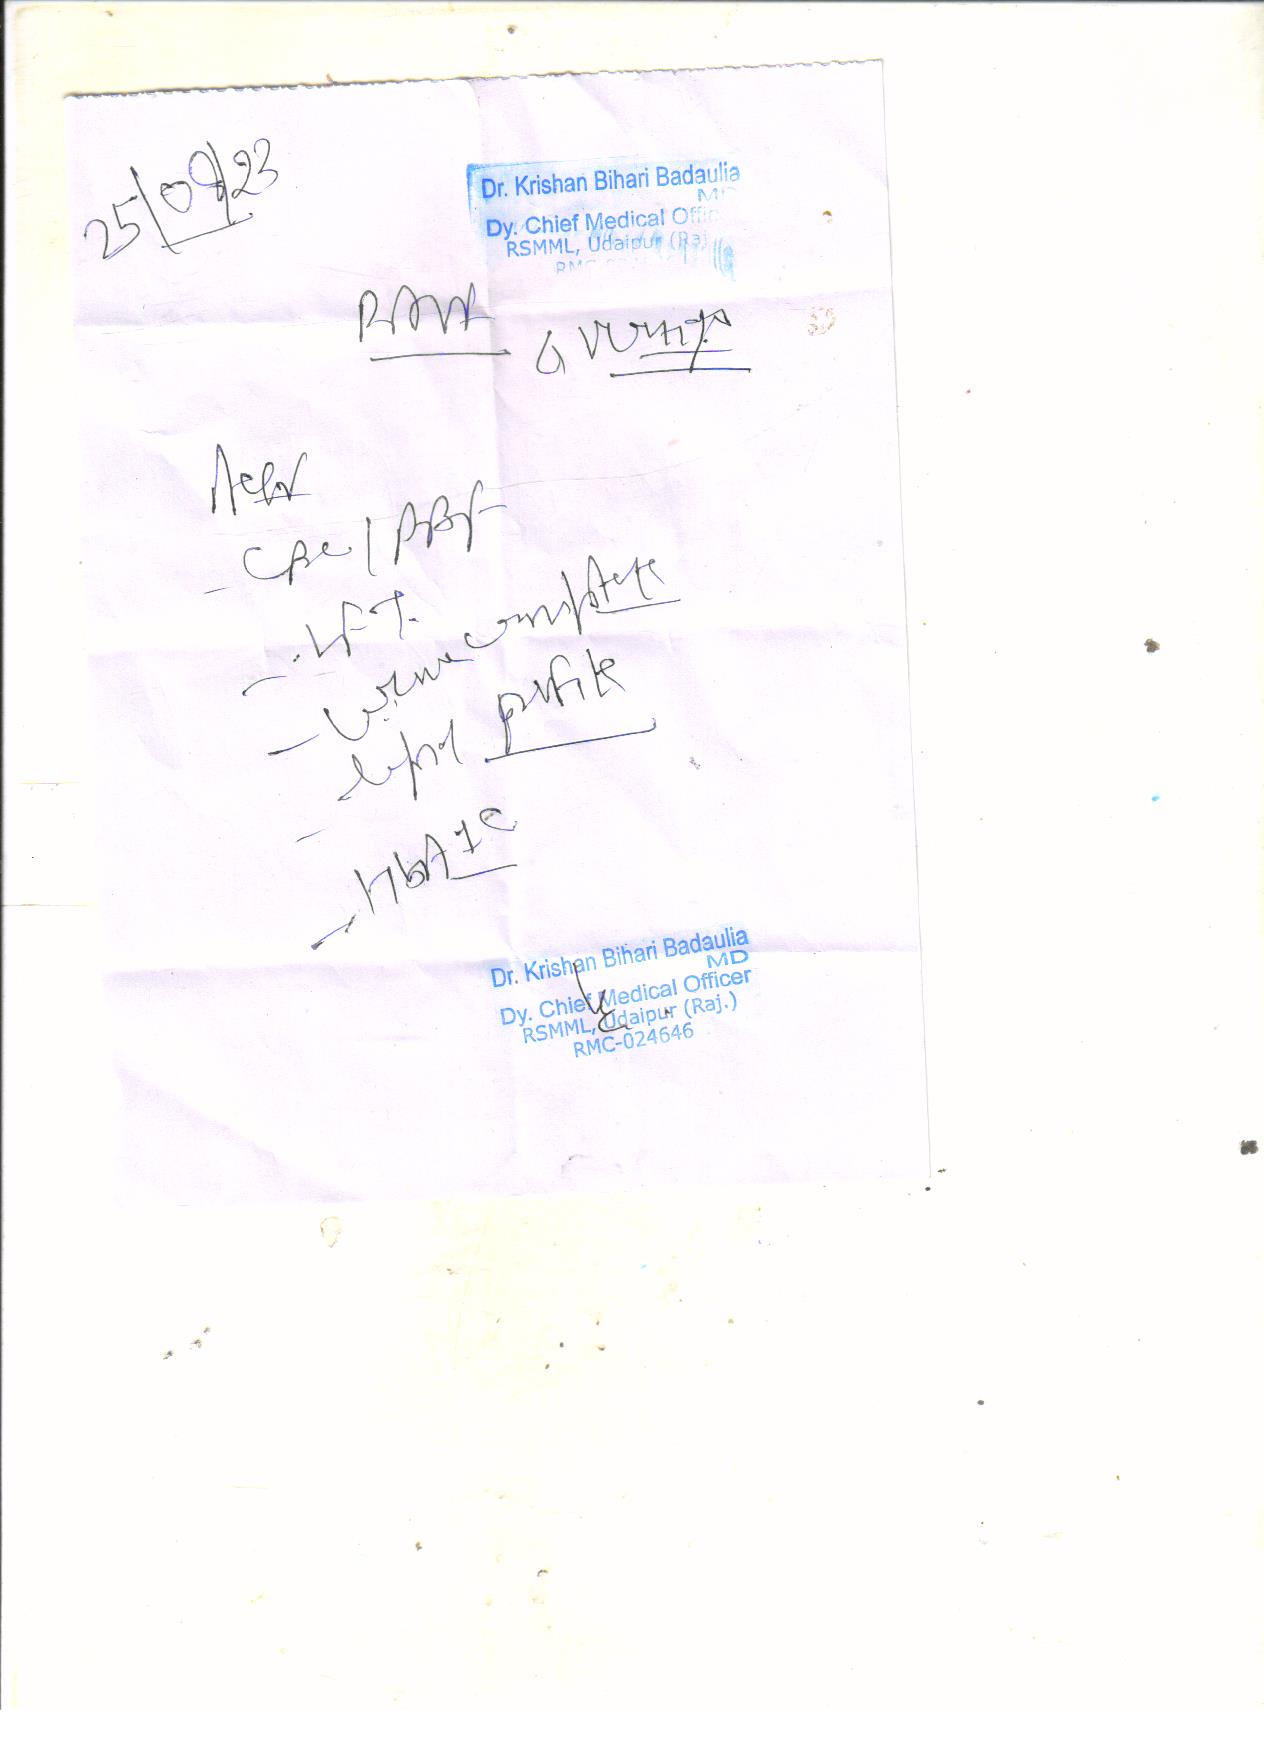 25/09/23
Dr. Krishan Bihari Badaulia
MD
Dy. Chief Medical Offic
RSMML, Udaipur (Raj.
RMC
c vertigo
Adv
- CBC / PBF
- LFT.
- urine complete
- lipid profile
- HbA1C
Dr. Krishan Bihari Badaulia
MD
Dy. Chief Medical Officer
RSMML, Udaipur (Raj.)
RMC-024646